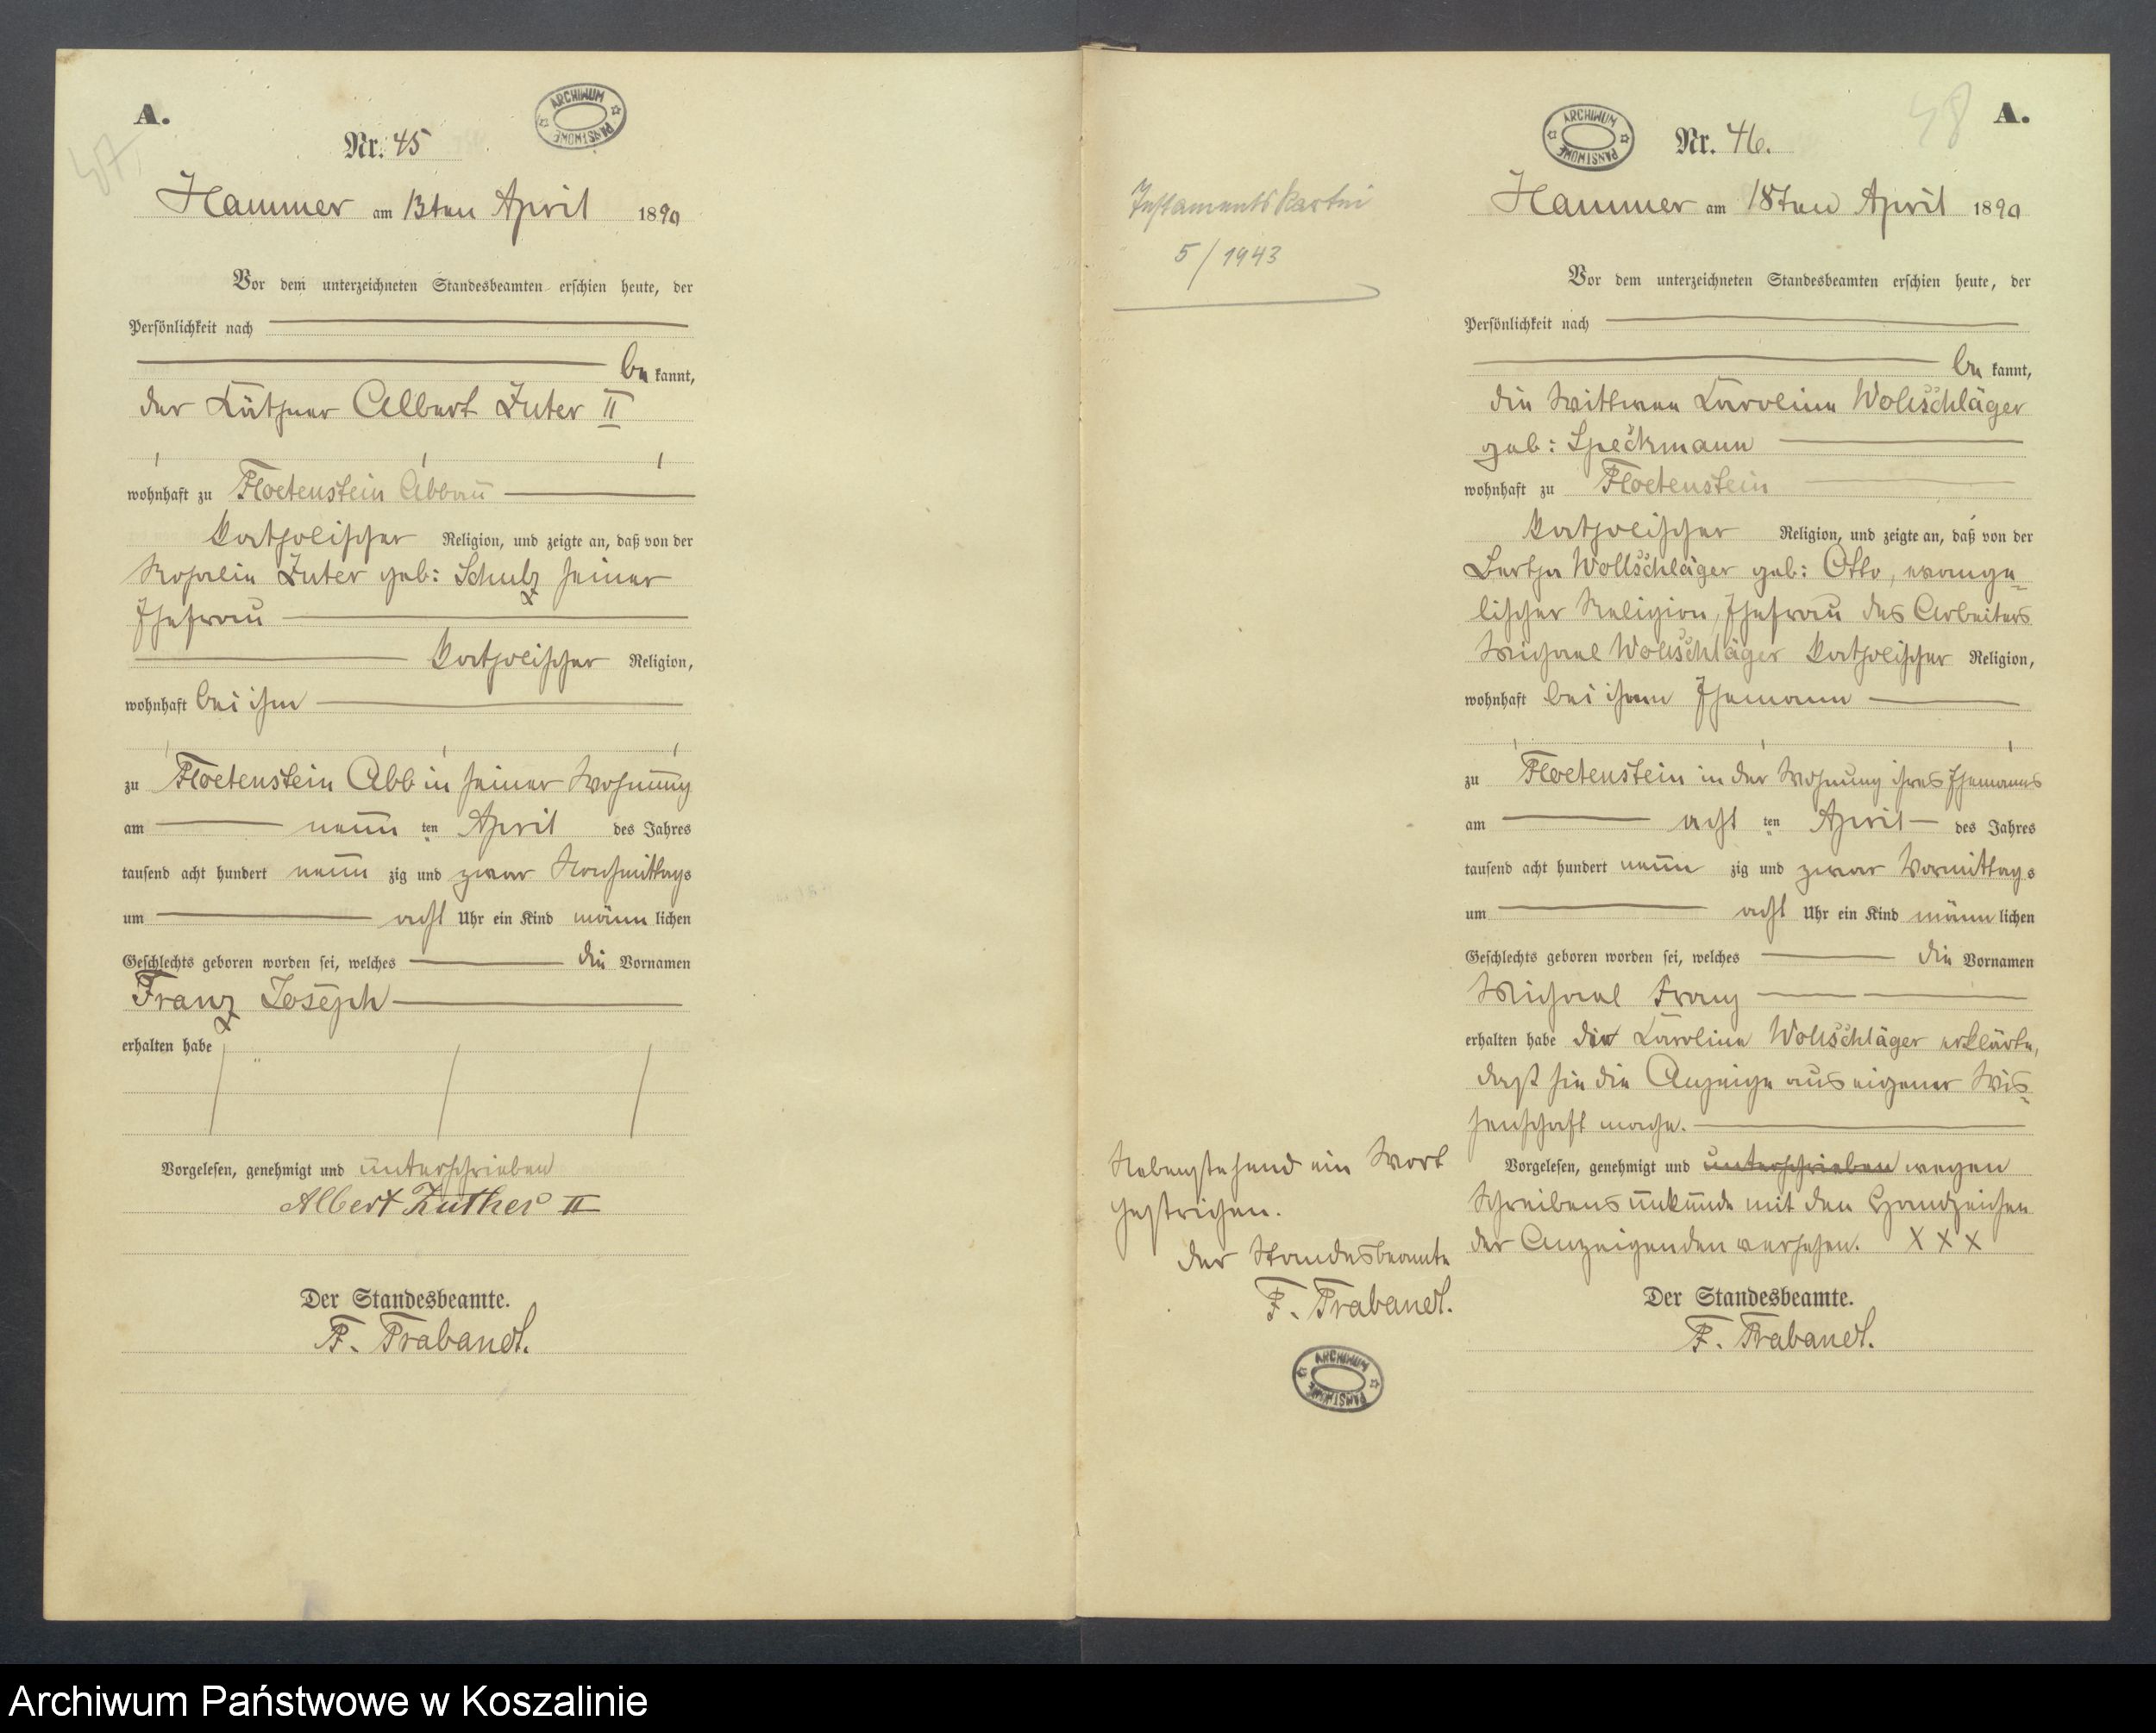 A.
47.
ARCHIWUM PAŃSTWOWE
Nr. 45
Hammer am 13ten April 1890
Vor dem unterzeichneten Standesbeamten erschien heute, der
Persönlichkeit nach
be kannt,
der Käthner Albert Zuter II
wohnhaft zu Floetenstein Abbau
katholischer Religion, und zeigte an, daß von der
Rosalie Zuter geb: Schulz seiner
Ehefrau
katholischer Religion,
wohnhaft bei ihm
zu Floetenstein Abb in seiner Wohnung
am neun ten April des Jahres
tausend acht hundert neun zig und zwar Nachmittags
um acht Uhr ein Kind männ lichen
Geschlechts geboren worden sei, welches die Vornamen
Franz Joseph
erhalten habe
Vorgelesen, genehmigt und unterschrieben
Albert Zuther II
Der Standesbeamte.
F. Trabandt.
A.
48
ARCHIWUM PAŃSTWOWE
Nr. 46.
Testamentskartei
5/1943
Hammer am 18ten April 1890
Vor dem unterzeichneten Standesbeamten erschien heute, der
Persönlichkeit nach
be kannt,
die Wittwe Karoline Wollschläger
geb: Speckmann
wohnhaft zu Floetenstein
katholischer Religion, und zeigte an, daß von der
Bertha Wollschläger geb: Otto, evange-
lischer Religion, Ehefrau des Arbeiters
Michael Wollschläger katholischer Religion,
wohnhaft bei ihrem Ehemann
zu Floetenstein in der Wohnung ihres Ehemanns
am acht ten April des Jahres
tausend acht hundert neun zig und zwar Vormittags
um acht Uhr ein Kind männ lichen
Geschlechts geboren worden sei, welches die Vornamen
Michael Franz
erhalten habe die Karoline Wollschläger erklärte,
daß sie die Anzeige aus eigener Wis-
senschaft mache.
Vorgelesen, genehmigt und unterschrieben wegen
Schreibensunkunde mit den Handzeichen
der Anzeigenden versehen. X X X
Nebenstehend ein Wort
gestrichen.
der Standesbeamte
F. Trabandt.
Der Standesbeamte.
F. Trabandt.
ARCHIWUM PAŃSTWOWE
Archiwum Państwowe w Koszalinie